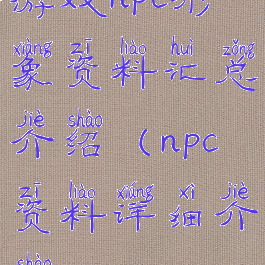 游戏npc形
xiàng zī liào huì zǒng
象资料汇总
jiè shào
介绍（npc
zī liào xiáng xì jiè
资料详细介
shào